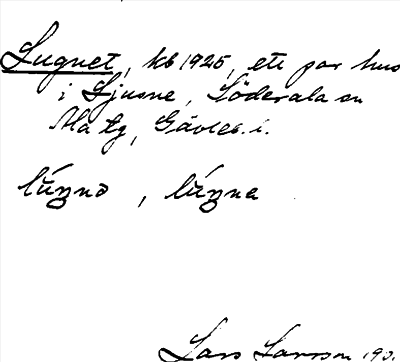 Lugnet, kb 1925, ett par hus
i Ljusne, Söderala sn
Ala tg, Gävleb. l.
Lars Larsson 190